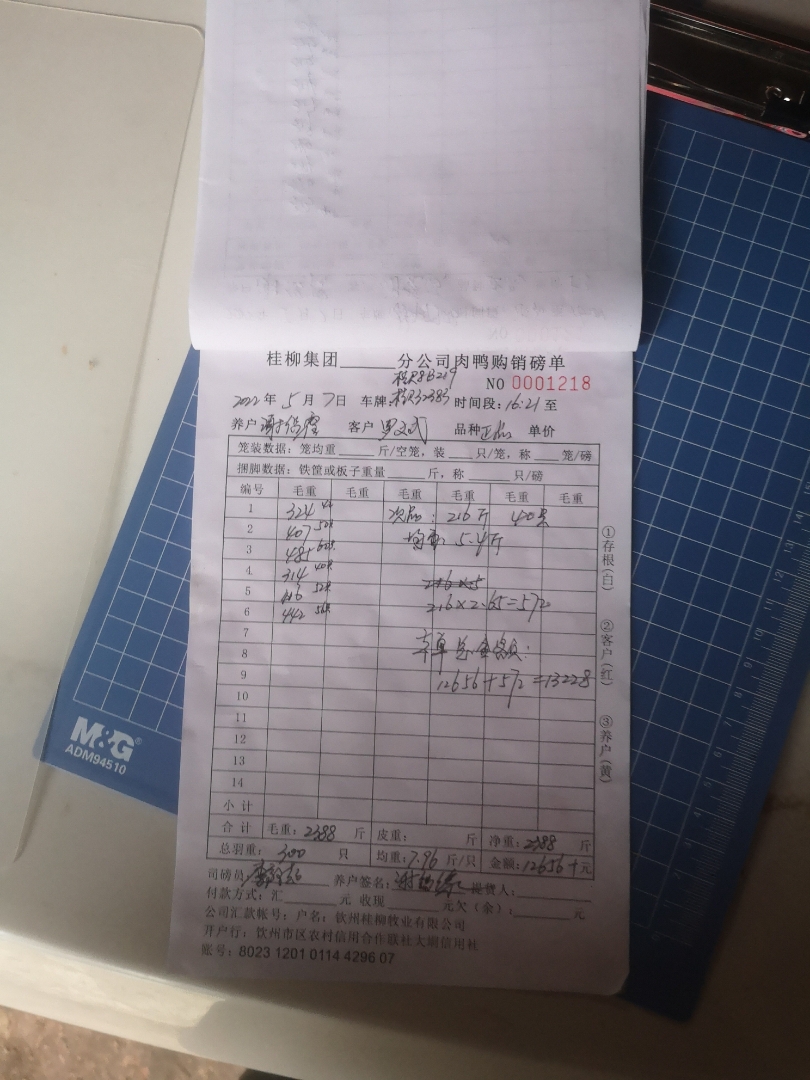 桂柳集团______分公司肉鸭购销磅单
NO 0001218
2022年 5月 7日 车牌: 时间段: 16:21 至
养户 客户 品种 正品 单价
笼装数据: 笼均重____斤/空笼, 装____只/笼, 称____笼/磅
捆脚数据: 铁筐或板子重量____斤, 称____只/磅
编号 毛重 毛重 毛重 毛重 毛重 毛重
1 324 次品: 216斤 40只
2 407 50只 均重: 5.4斤
3 485 60只
4 314 40只 216×5
5 416 52只 216×2.65=572
6 442 56只
7
8 总金额:
9 12656+572=13228
10
11
12
13
14
小计
合计 毛重: 2388 斤 皮重: 斤 净重: 2388 斤
总羽重: 300 只 均重: 7.96 斤/只 金额: 12656 元
司磅员: 养户签名: 提货人:
付款方式: 汇______元 收现______元欠(余):______元
公司汇款帐号: 户名: 钦州桂柳牧业有限公司
开户行: 钦州市区农村信用合作联社大垌信用社
账号: 8023 1201 0114 4296 07
①存根(白)
②客户(红)
③养户(黄)
M&G
ADM94510